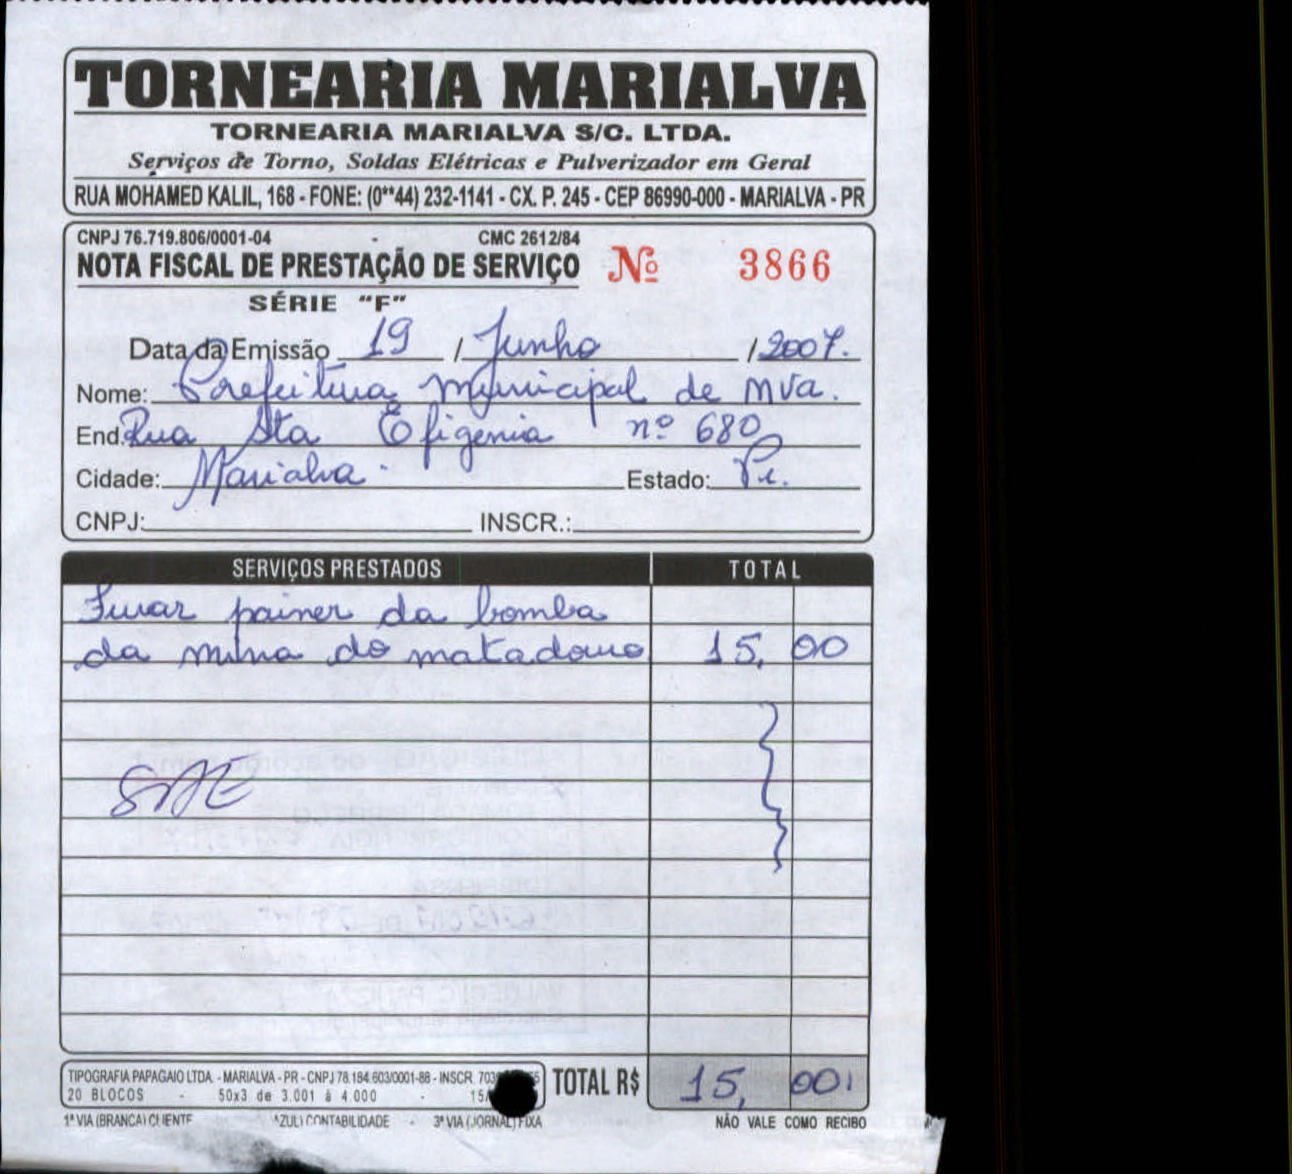 TORNEARIA MARIALVA
TORNEARIA MARIALVA S/C. LTDA.
Serviços de Torno, Soldas Elétricas e Pulverizador em Geral
RUA MOHAMED KALIL, 168 - FONE: (0**44) 232-1141 - CX. P. 245 - CEP 86990-000 - MARIALVA - PR
CNPJ 76.719.806/0001-04 CMC 2612/84
NOTA FISCAL DE PRESTAÇÃO DE SERVIÇO Nº 3866
SÉRIE "F"
Data da Emissão 19 / Junho / 2007.
Nome: Prefeitura Municipal de Mva.
End. Rua Sta Efigenia nº 680
Cidade: Marialva. Estado: Pr.
CNPJ: INSCR.:
SERVIÇOS PRESTADOS TOTAL
Furar painer da bomba
da mina do matadouro 15,00
SAE
TIPOGRAFIA PAPAGAIO LTDA. - MARIALVA - PR - CNPJ 78.184.603/0001-88 - INSCR.
20 BLOCOS - 50x3 de 3.001 à 4.000 -
TOTAL R$ 15,00
1ª VIA (BRANCA) CLIENTE AZUL) CONTABILIDADE - 3ª VIA (JORNAL) FIXA NÃO VALE COMO RECIBO